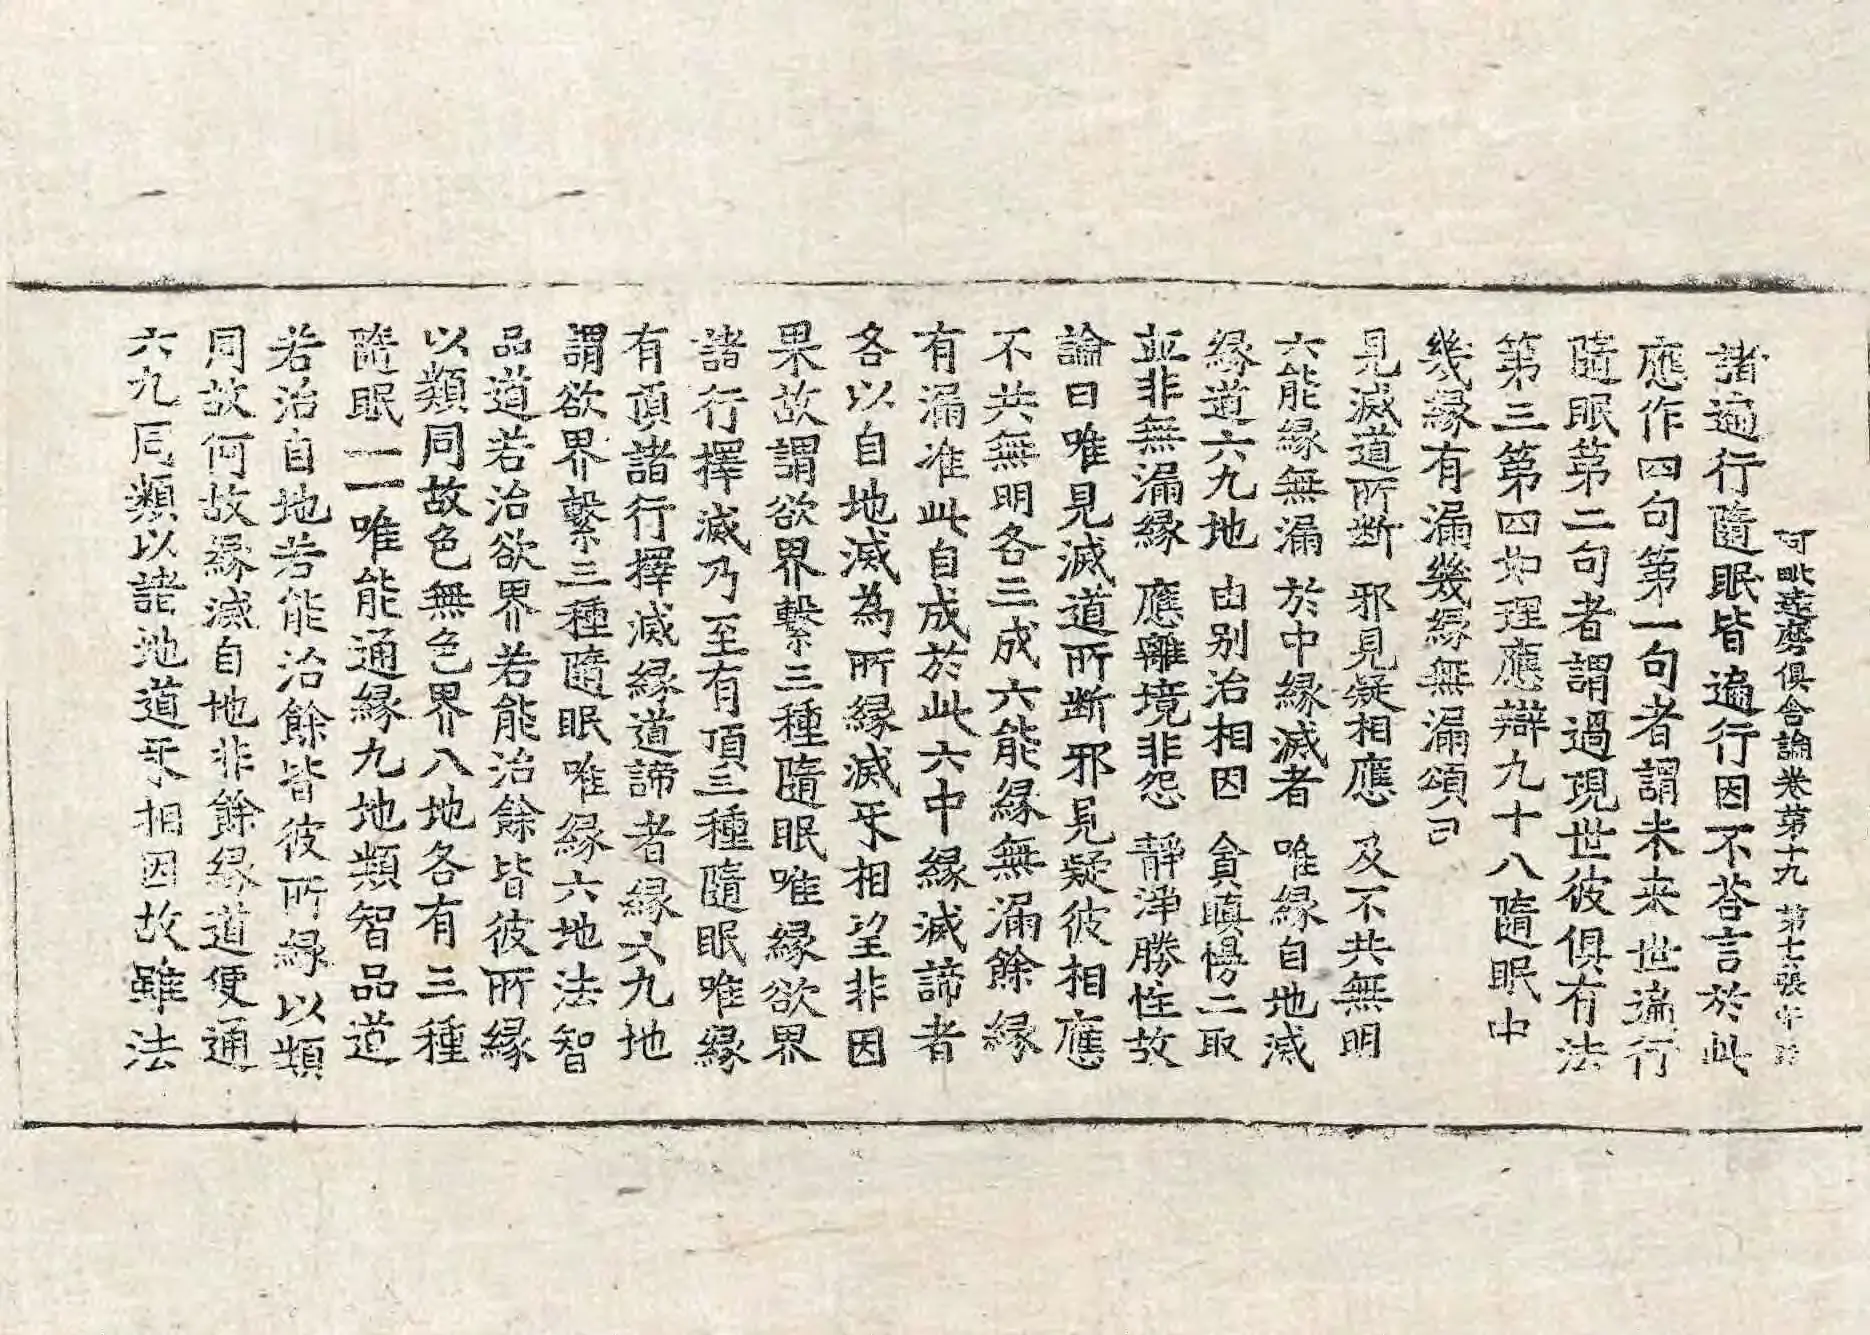 阿毗達磨俱舍論卷第十九 第十七張
諸遍行隨眠皆遍行因不荅言於此
應作四句第一句者謂未來世遍行
隨眠第二句者謂過現世彼俱有法
第三第四如理應辯九十八隨眠中
幾緣有漏幾緣無漏頌曰
見滅道所斷 邪見疑相應 及不共無明
六能緣無漏 於中緣滅者 唯緣自地滅
緣道六九地 由別治相因 貪瞋慢二取
並非無漏緣 應離境非怨 靜淨勝性故
論曰唯見滅道所斷邪見疑彼相應
不共無明各三成六能緣無漏餘緣
有漏准此自成於此六中緣滅諦者
各以自地滅為所緣滅互相望非因
果故謂欲界繫三種隨眠唯緣欲界
諸行擇滅乃至有頂三種隨眠唯緣
有頂諸行擇滅緣道諦者緣六九地
謂欲界繫三種隨眠唯緣六地法智
品道若治欲界若能治餘皆彼所緣
以類同故色無色界八地各有三種
隨眠一一唯能通緣九地類智品道
若治自地若能治餘皆彼所緣以類
同故何故緣滅自地非餘緣道便通
六九同類以諸地道互相因故雖法